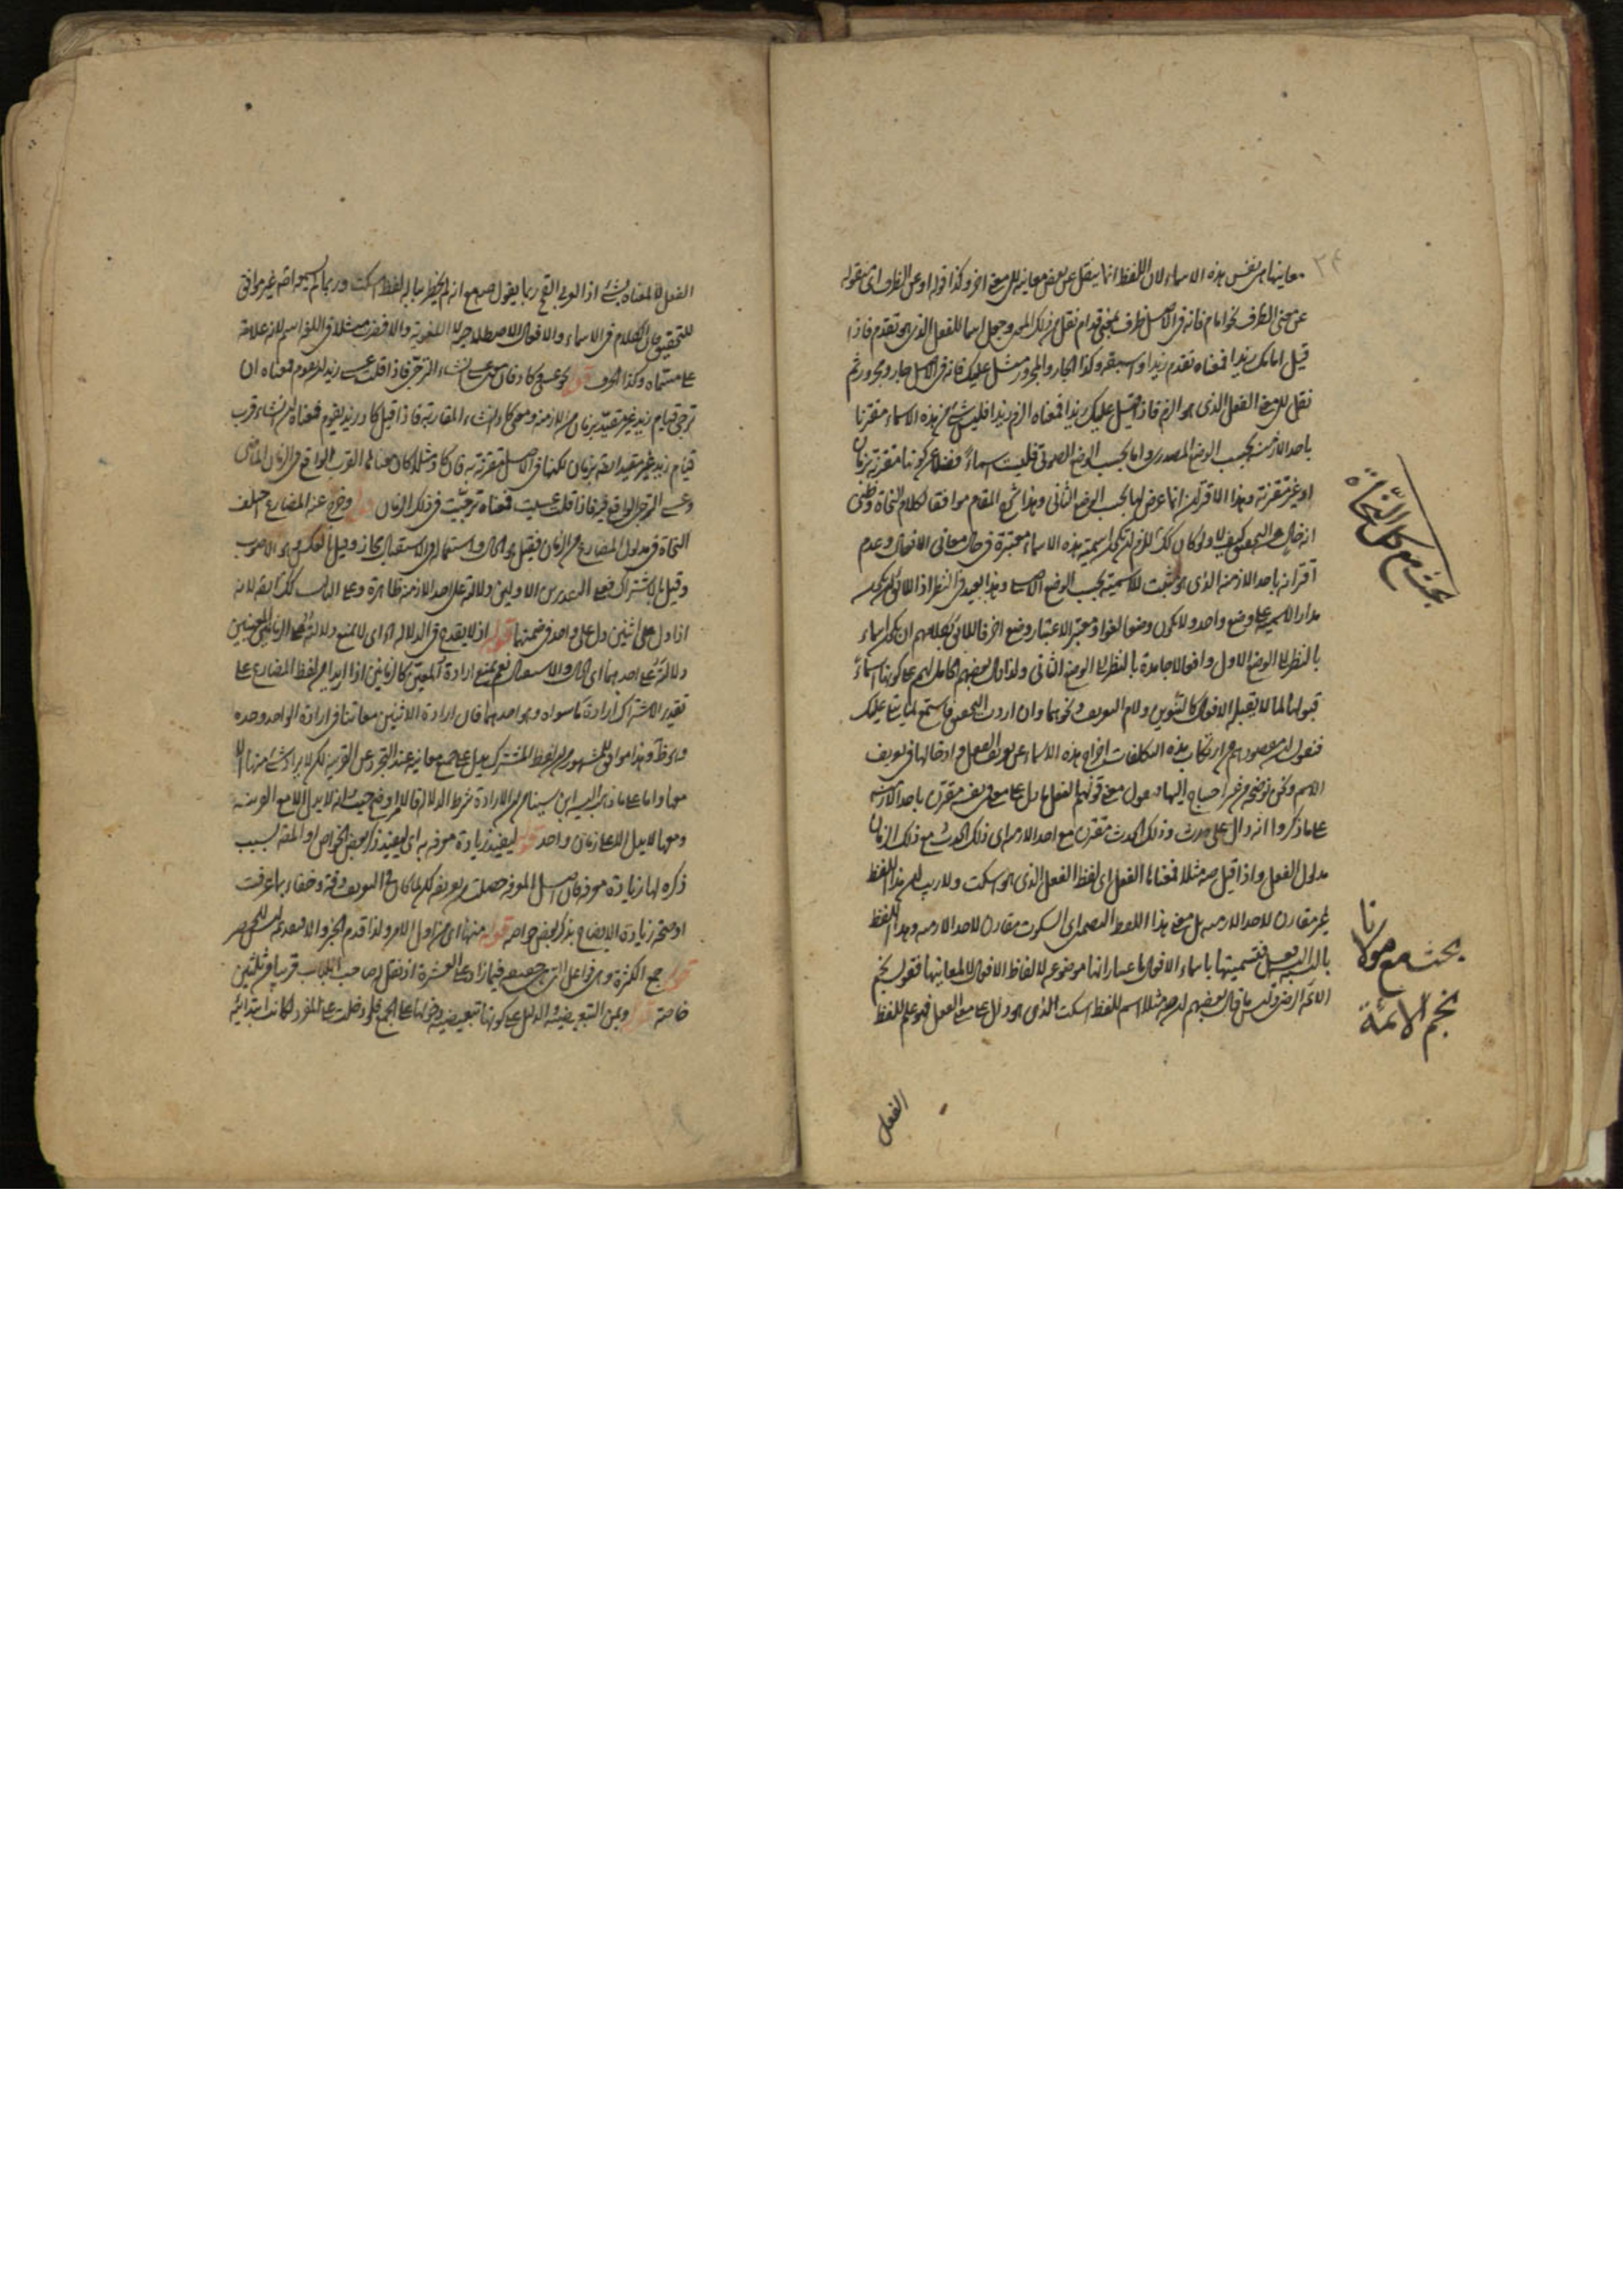 معانيها من نفس هذه الاسماء لان اللفظ انما ينقل عن بعض معانيه الى معنى اخر وكذا قوله او عن الظرف اى منقوله
عن معنى الظرف نحو امام فانه فى الاصل ظرف بمعنى قدام نقل من ذلك المعنى وجعل اسما للفعل الذى هو تقدم فاذا
قيل امامك زيدا فمعناه تقدم زيدا وكذا الجار والمجرور مثل عليك فانه فى الاصل جار ومجرور ثم
نقل الى معنى الفعل الذى هو الزم فاذا قيل عليك زيدا فمعناه الزم زيدا فليس شئ من هذه الاسماء مقترنا
باحد الازمنة بحسب الوضع المصدرى واما بحسب الوضع الصوتى فليست اسماء فضلا عن كونها مقترنة بزمان
او غير مقترنة وهذا الاقتران انما عرض لها بحسب الوضع الثانى وهذا شرح المقام موافقا لكلام النحاة وظنى
انه خال عن التحقيق كيف لا ولو كان كذلك للزم ان تكون اسمية هذه الاسماء معتبرة فى حال معانى الافعال وعدم
اقترانه باحد الازمنة الذى هو مثبت للاسمية بحسب الوضع الاصلى وهذا بعيد فى النظر اذ اللائق ان يكون
مدار الاسمية على وضع واحد ولا يكون وضعا لغوا ومعتبر الاعتبار وضع اخر فاللائق بكلامهم ان يكون اسماء
بالنظر الى الوضع الاول وافعالا جامدة بالنظر الى الوضع الثانى ولذا قال بعضهم الحامل لهم على كونها اسماء
قبولها لما لا يقبله الافعال كالتنوين ولام التعريف ونحوهما وان اردت التحقيق فاستمع لما يتلى عليك
فنقول ان مقصودهم من ارتكاب هذه التكلفات اخراج هذه الاسماء عن تعريف الفعل وادخالها فى تعريف
الاسم ونحن نوضحه من غير احتياج اليها ونقول معنى قولهم الفعل ما دل على معنى فى نفسه مقترن باحد الازمنة
على ما ذكروا انه دال على حدث وذلك الحدث مقترن مع احد الازمنة اى ذلك الحدث مع ذلك الزمان
مدلول الفعل واذا قيل صه مثلا فمعناه الفعل اى لفظ الفعل الذى هو اسكت ولا ريب ان هذا اللفظ
غير مقارن لاحد الازمنة بل معنى هذا اللفظ اى السكوت مقارن لاحد الازمنة وهذا اللفظ
فتسميتها باسماء الافعال باعتبار انها موضوعة لالفاظ الافعال لا لمعانيها فقول نجم
الائمة الرضى ليس ما قال بعضهم ان صه مثلا اسم للفظ اسكت الذى هو دال على معنى الفعل فهو علم للفظ
الفعل
بحث مع كل النحاة
بحث مع مولانا
نجم الائمة
٢٤
الفعل لا لمعناه بشئ اذ العربى القح ربما يقول صه مع انه لم يخطر بباله لفظ اسكت وربما لم يسمعه اصلا غير موافق
للتحقيق فان الكلام فى الاسماء والافعال الاصطلاحية لا اللغوية والا فضرب مثلا فى اللغة اسم لانه علامة
على مسماه وكذا الحرف قوله نحو عسى وكاد فان معنى عسى انشاء الترجى فاذا قلت عسى زيد ان يقوم فمعناه ان
ترجى قيام زيد غير مقيد بزمان من الازمنة ومعنى كاد انشاء المقاربة فاذا قيل كاد زيد يقوم فمعناه انشاء قرب
قيام زيد غير مقيد ايضا بزمان لكنهما فى الاصل مقترنة به فان كاد مثلا كان معناها القرب الواقع فى الزمان الماضى
وعسى الترجى الواقع فيه فاذا قلت عسيت فمعناه ترجيت فى ذلك الزمان قوله وخرج عنه المضارع اختلف
النحاة فى مدلول المضارع من الزمان فقيل هو الحال واستعماله فى الاستقبال مجاز وقيل بالعكس وهو الاصوب
وقيل بالاشتراك فعلى التقديرين الاولين دلالته على احد الازمنة ظاهرة وعلى الثالث كذلك ايضا لانه
اذا دل على اثنين دل على واحد فى ضمنهما قوله اذ لا يقدح فى الدلالة اى لا يمنع دلالته على الزمانين المعينين
دلالته على احدهما اى الحال والاستقبال نعم يمتنع ارادة المعنيين كالزمانين اذا اريد من لفظ المضارع على
تقدير الاشتراك ارادة ما سواه وهو احدهما فان ارادة الاثنين معا تنافى ارادة الواحد وحده
وهذا موافق للمشهور من ان لفظ المشترك يدل على جميع معانيه عند التجرد عن القرينة لكن لا يراد شئ منها الا
معها واما على ما ذهب اليه ابن سينا من ان الارادة شرط الدلالة فالامر اوضح حيث انه لا يدل الا مع القرينة
ومعها لا يدل الا على زمان واحد قوله ليفيد زيادة معرفة به اى ليفيد ذكر بعض الخواص او المصنف بسبب
ذكره لها زيادة معرفة فان اصل المعرفة حصلت بتعريفه لكن لما كان فى التعريف دقة وخفاء بما عرفت
اوضحه زيادة الايضاح بذكر بعض خواصه قوله منها اى من اول الامر ولذا قدم الخبر والا فتقديمه ليس للحصر
قوله جمع الكثرة
خاصة قوله ومن التبعيضية الدليل على كونها تبعيضية دخولها على الجمع فلو دخلت على المفرد لكانت ابتدائية